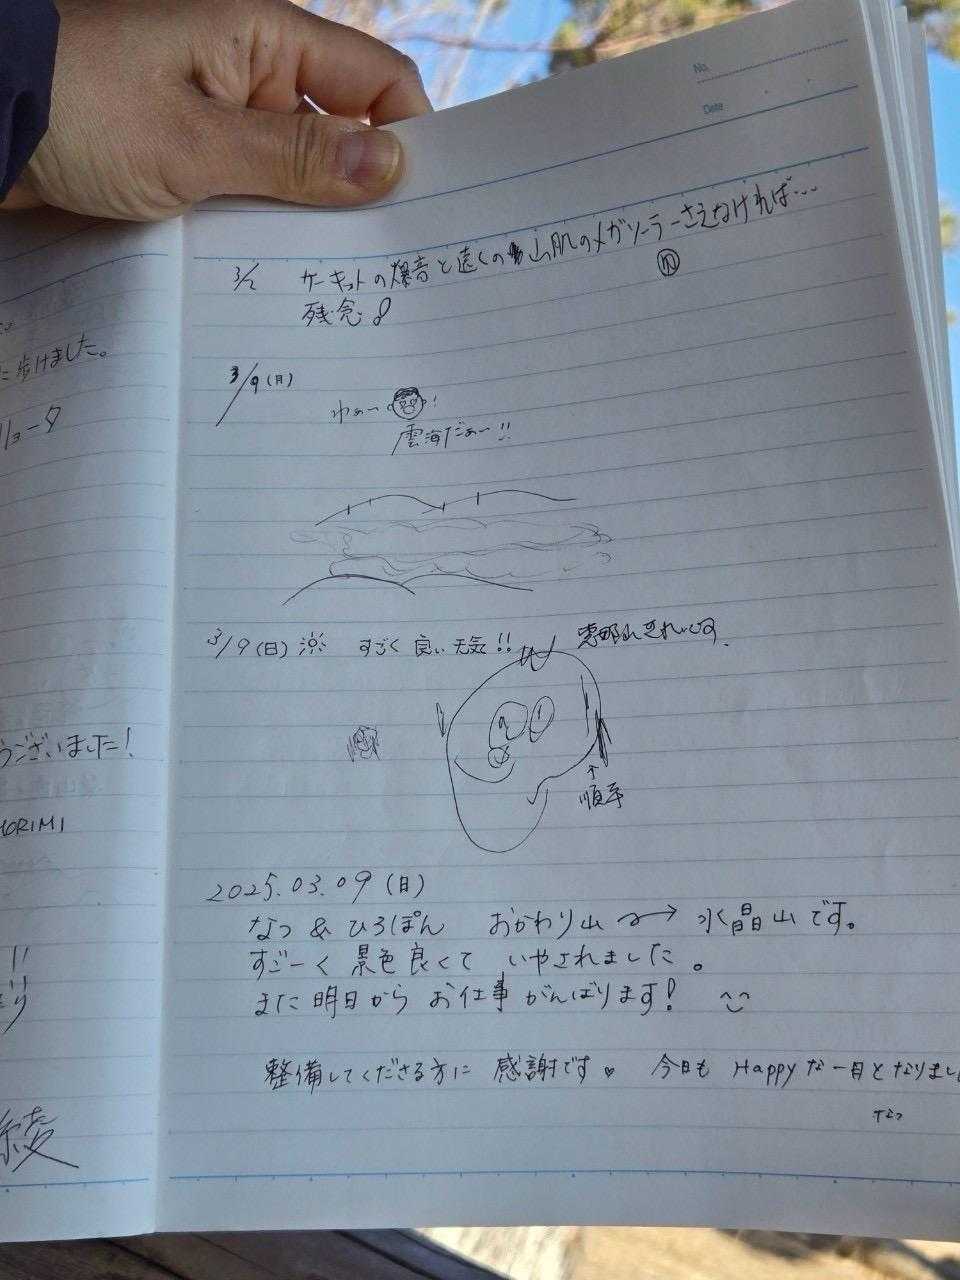 に歩けました。
リョータ
うございました！
HORIMI
綾
No.
Date
3/2 サーキットの爆音と遠くの山肌のメガソーラーさえなければ…
残念
3/9(月)
わぁー!
雲海だぁー!!
3/9(日) すごく良い天気!! 恵那山きれいです
↑
順平
2025.03.09(日)
なつ & ひろぽん おかわり山 → 水晶山です。
すごーく 景色良くて いやされました。
また明日から お仕事 がんばります!
整備してくださる方に 感謝です♥ 今日も Happyな一日となりまし